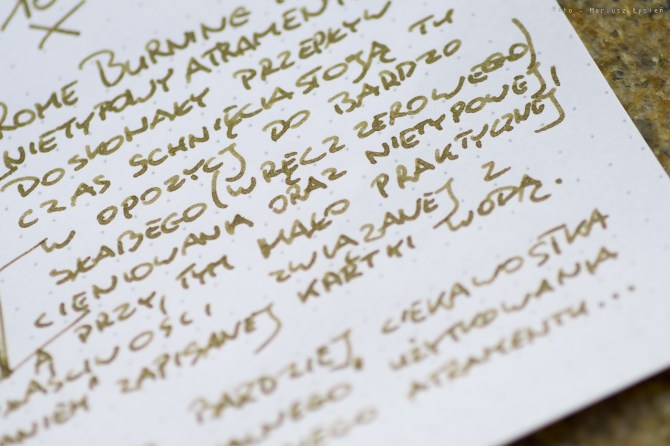 Foto - Mariusz Łysień
10
ROME BURNING
NIETYPOWY ATRAMENT
DOSKONAŁY PRZEPŁYW
CZAS SCHNIĘCIA STOJĄ TU
W OPOZYCJ DO BARDZO
SŁABEGO (WRĘCZ ZEROWEGO)
CIENIOWANIA ORAZ NIETYPOWEJ,
A PRZY TYM MAŁO PRAKTYCZNEJ
WŁAŚCIWOŚCI ZWIĄZANEJ Z
ZAPISANEJ KARTKI WODĄ.
BARDZIEJ CIEKAWOSTKA
UŻYTKOWANIA
ATRAMENTU...